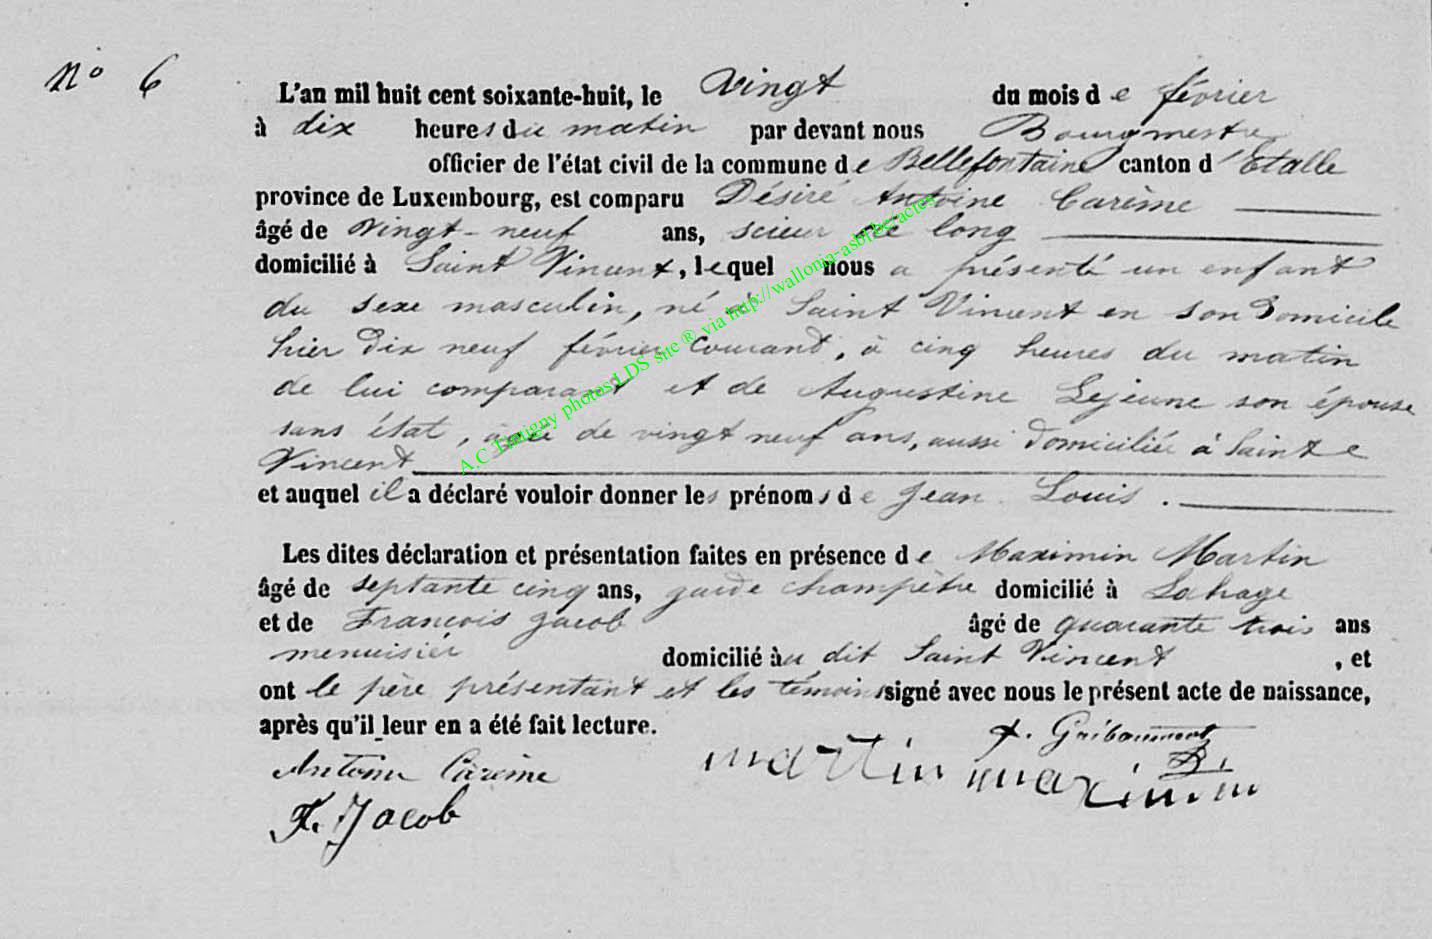 N° 6
L'an mil huit cent soixante-huit, le vingt du mois de février
à dix heures du matin par devant nous Bourgmestre
officier de l'état civil de la commune de Bellefontaine canton d'Etalle
province de Luxembourg, est comparu Désiré Antoine Carême
âgé de vingt-neuf ans, scieur de long
domicilié à Saint Vincent, lequel nous a présenté un enfant
du sexe masculin, né à Saint Vincent en son domicile
hier dix neuf février courant, à cinq heures du matin
de lui comparant et de Augustine Lejeune son épouse
sans état, âgée de vingt neuf ans, aussi domiciliée à Sainte
Vincent
et auquel il a déclaré vouloir donner les prénoms de Jean Louis.
Les dites déclaration et présentation faites en présence de Maximin Martin
âgé de septante cinq ans, garde champêtre domicilié à Lahage
et de François Jacob âgé de quarante trois ans
menuisier domicilié au dit Saint Vincent, et
ont le père présentant et les témoins signé avec nous le présent acte de naissance,
après qu'il leur en a été fait lecture.
Antoine Carême martin maximin Gribaumont
F. Jacob
A.C Tintigny photos LDS site ® via http://wallonia-asbl.be/actes/